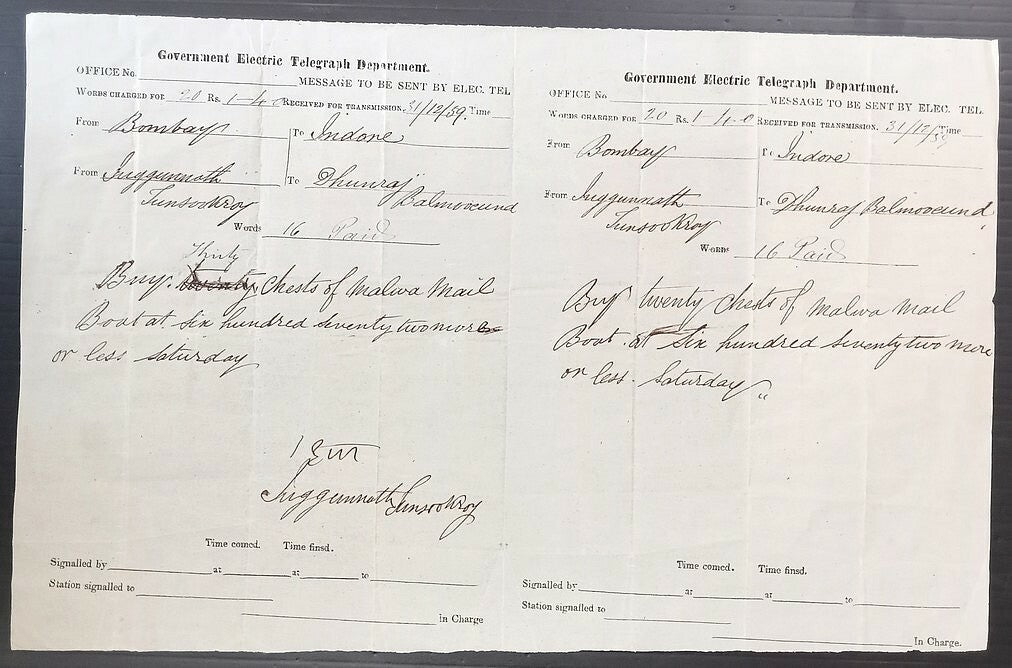 Government Electric Telegraph Department.
OFFICE No.
MESSAGE TO BE SENT BY ELEC. TEL
WORDS CHARGED FOR 20 Rs. 1-4-0 RECEIVED FOR TRANSMISSION. 31/12/59. Time
From Bombay To Indore
From Juggunnath To Dhunraj
Sunsookroy Balmoocund
Words 16 Paid
Thirty
Buy twenty Chests of Malwa Mail
Boat at six hundred seventy two more
or less Saturday
Juggunnath Sunsookroy
Time comcd. Time finsd.
Signalled by at at to
Station signalled to
in Charge
Government Electric Telegraph Department.
OFFICE No
MESSAGE TO BE SENT BY ELEC. TEL
WORDS CHARGED FOR 20 Rs. 1-4-0 RECEIVED FOR TRANSMISSION. 31/12/59 Time
From Bombay To Indore
From Juggunnath To Dhunraj Balmoocund
Sunsookroy
Words 16 Paid
Buy twenty Chests of Malwa Mail
Boat at Six hundred seventy two more
or less Saturday "
Time comcd. Time finsd.
Signalled by at at to
Station signalled to
In Charge.